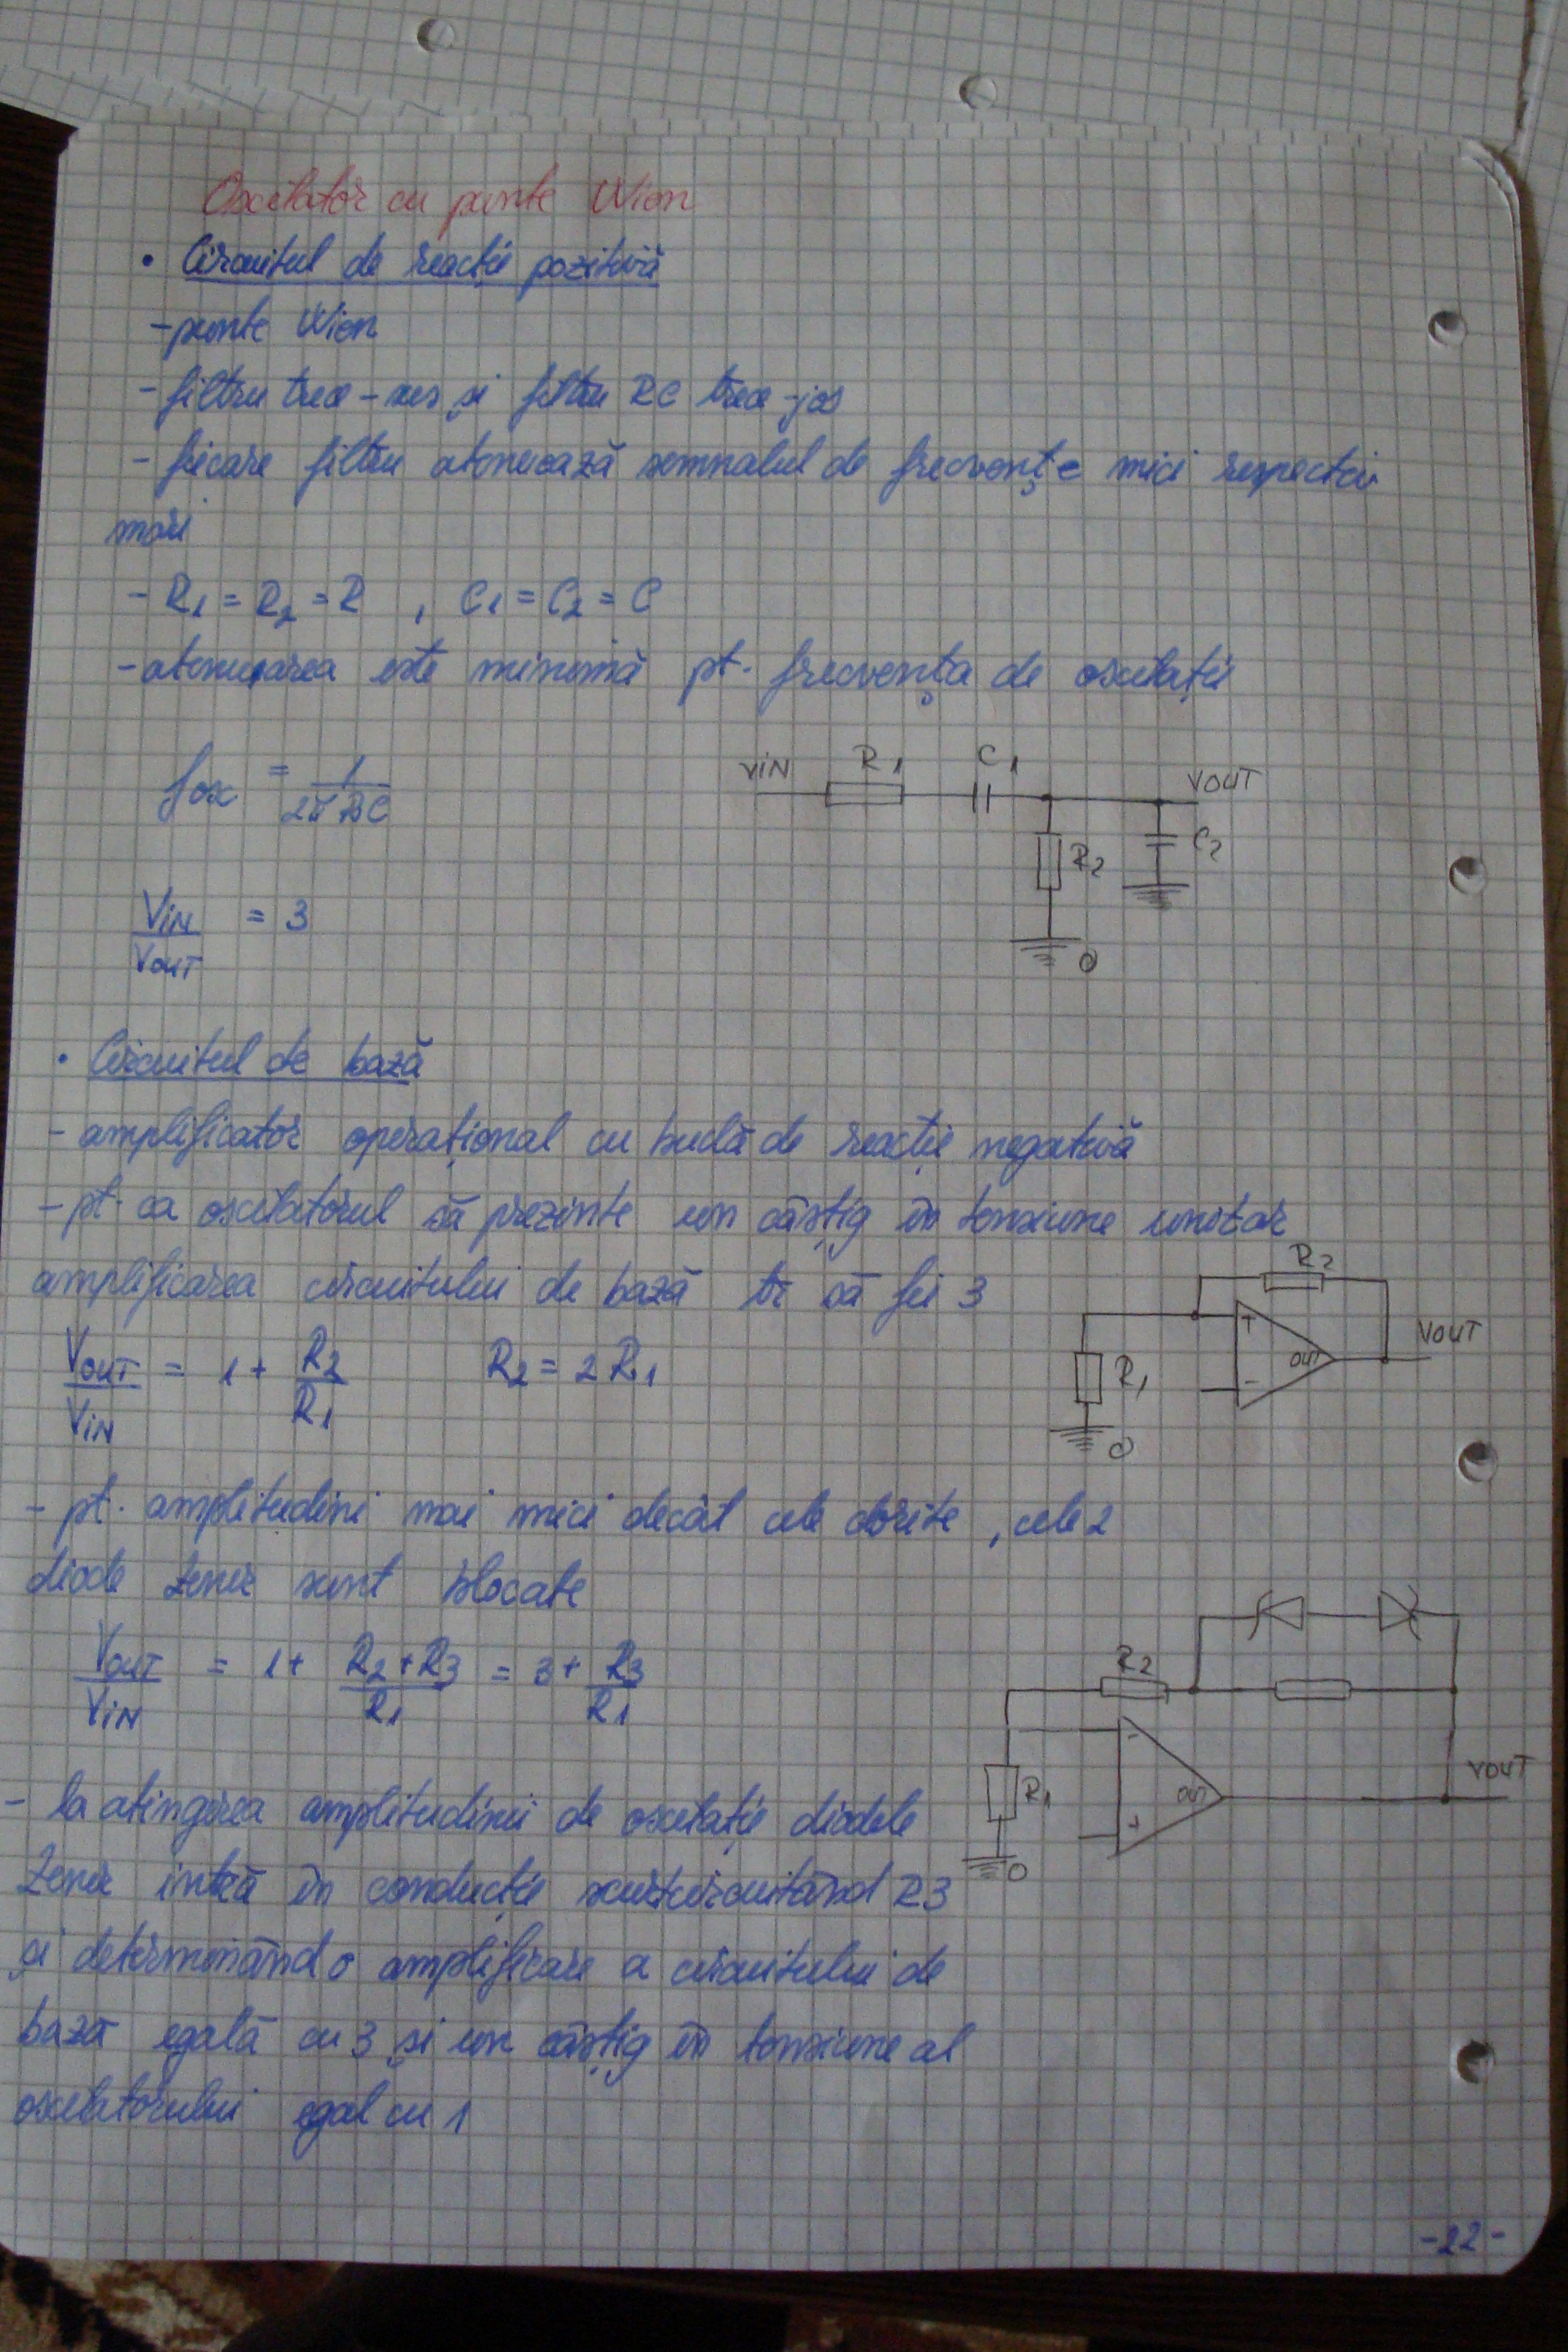 Oscilator cu punte Wien
• Circuitul de reacție pozitivă
- punte Wien
- filtru trece-sus și filtru RC trece-jos
- fiecare filtru atenuează semnalul de frecvențe mici respectiv
mari
- R1 = R2 = R , C1 = C2 = C
- atenuarea este minimă pt. frecvența de oscilație
fosc = 1/2πRC
VIN R1 C1 VOUT
R2 C2
0
VIN/VOUT = 3
• Circuitul de bază
- amplificator operațional cu buclă de reacție negativă
- pt. ca oscilatorul să prezinte un câștig în tensiune unitar
amplificarea circuitului de bază tr să fie 3
VOUT/VIN = 1 + R2/R1 R2 = 2R1
R2
+ VOUT
R1 OUT
-
0
- pt. amplitudini mai mici decât cele dorite, cele 2
diode Zener sunt blocate
VOUT/VIN = 1 + R2+R3/R1 = 3 + R3/R1
R2
-
R1 OUT VOUT
+
0
- la atingerea amplitudinii de oscilație diodele
Zener intră în conducție scurtcircuitând R3
și determinând o amplificare a circuitului de
bază egală cu 3 și un câștig în tensiune al
oscilatorului egal cu 1
-22-